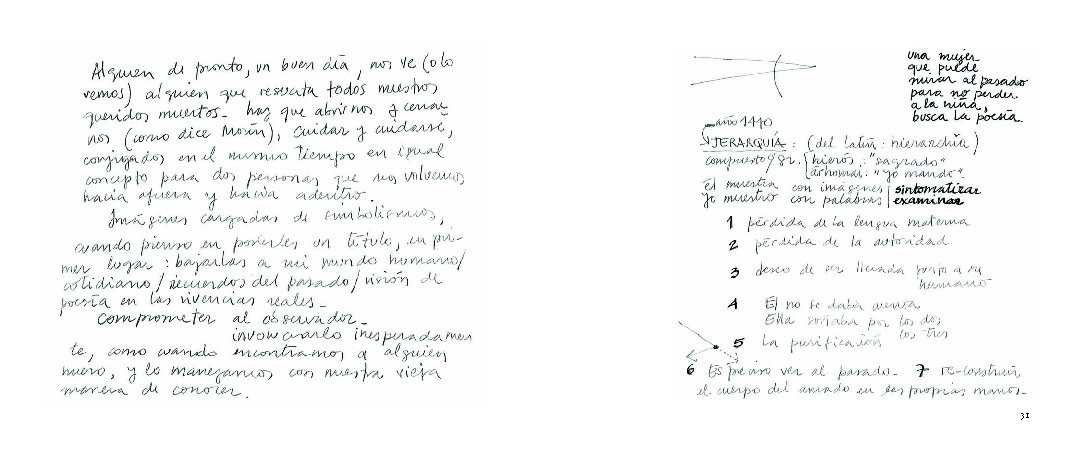 Alguien de pronto, un buen día, nos ve (o lo
vemos) alguien que rescata todos nuestros
queridos muertos. hay que abrirnos y cerrar
nos (como dice Morin), cuidar y cuidarse,
conjugados en el mismo tiempo en igual
concepto para dos personas que nos volvemos
hacia afuera y hacia adentro.
Imágenes cargadas de simbolismos,
cuando pienso en ponerles un título, en pri-
mer lugar: bajarlas a mi mundo humano/
cotidiano/recuerdos del pasado/visión de
poesía en las vivencias reales_
comprometer al observador_
involucrarlo inesperadamen
te, como cuando encontramos a alguien
nuevo, y lo manejamos con nuestra vieja
manera de conocer.
una mujer
que puede
mirar al pasado
para no perder
a la niña,
busca la poesía.
año 1440
JERARQUÍA: (del Latín: hierarchia)
compuesto hierós: "sagrado"
"yo mando"
él muestra con imágenes | sintomatizar
yo muestro con palabras | examinar
1 pérdida de la lengua materna
2 pérdida de la autoridad
3 deseo de ser llevada junto a su
hermano
4 Él no se daba cuenta
Ella soñaba por los dos
los tres
5 La purificación
6 Es preciso ver al pasado_ 7 re-construir
el cuerpo del amado en las propias manos_
31